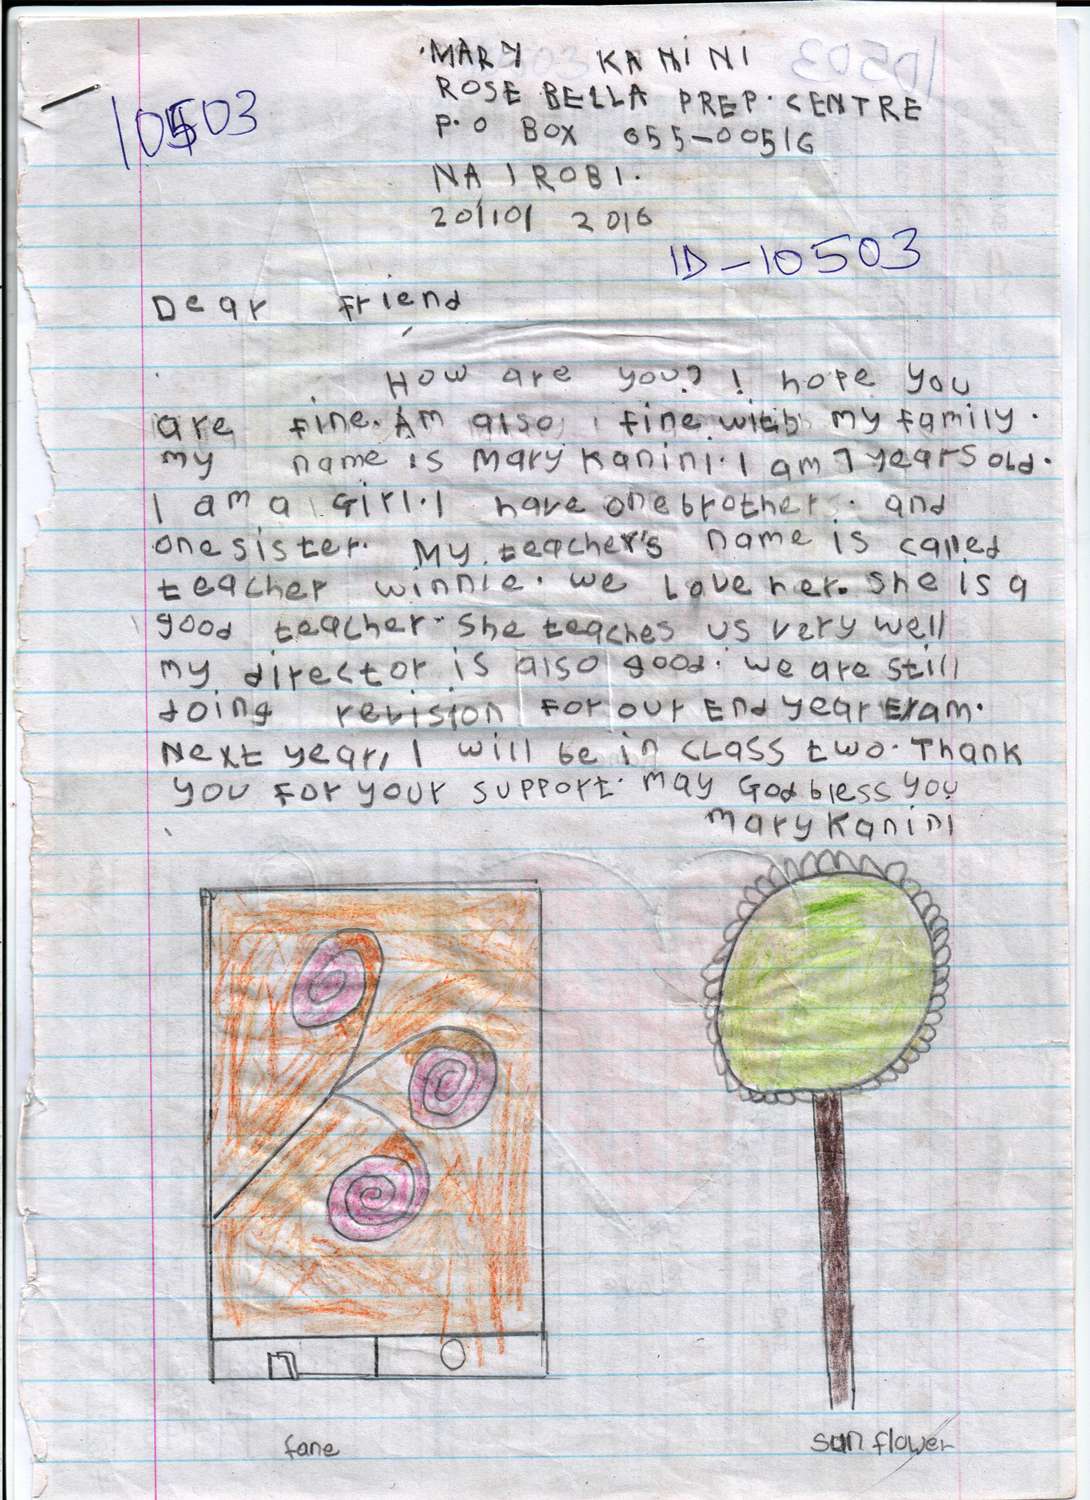 MARY KANINI
10503
ROSE BELLA PREP. CENTRE
P.O BOX 655-00516
NAIROBI.
20/10/ 2016
ID-10503
Dear friend
How are you? I hope you
are fine. Am also fine with my family.
my name is Mary Kanini. I am 7 years old.
I am a Girl. I have one brother. and
one sister. My teacher's name is called
teacher winnie. we love her. she is a
good teacher. she teaches us very well
my director is also good. we are still
doing revision for our End year Exam.
Next year, I will be in class two. Thank
you for your support. may God bless you
Mary Kanini
fane
sun flower